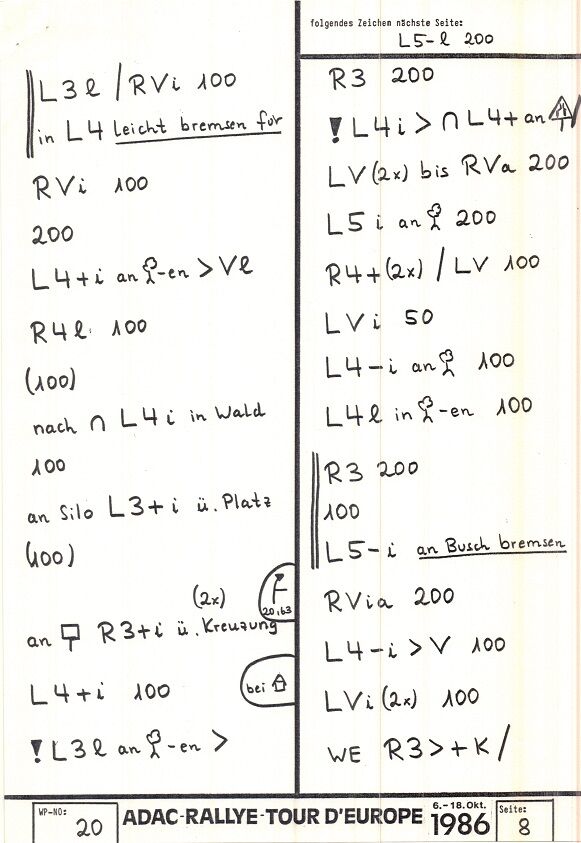 L3l / RVi 100
in L4 leicht bremsen für
RVi 100
200
L4+i an -en > Vl
R4l 100
(100)
nach ∩ L4i in Wald
100
an Silo L3+i ü. Platz
(100)
(2x)
20,63
an R3+i ü. Kreuzung
L4+i 100
bei
! L3l an -en >
folgendes Zeichen nächste Seite:
L5-l 200
R3 200
! L4i > ∩ L4+ an /
LV (2x) bis RVa 200
L5i an 200
R4+(2x) / LV 100
LVi 50
L4-i an 100
L4l in -en 100
R3 200
100
L5-i an Busch bremsen
RVia 200
L4-i > V 100
LVi (2x) 100
WE R3>+K/
WP-NO:
20
ADAC-RALLYE-TOUR D'EUROPE
6.-18.Okt.
1986
Seite:
8